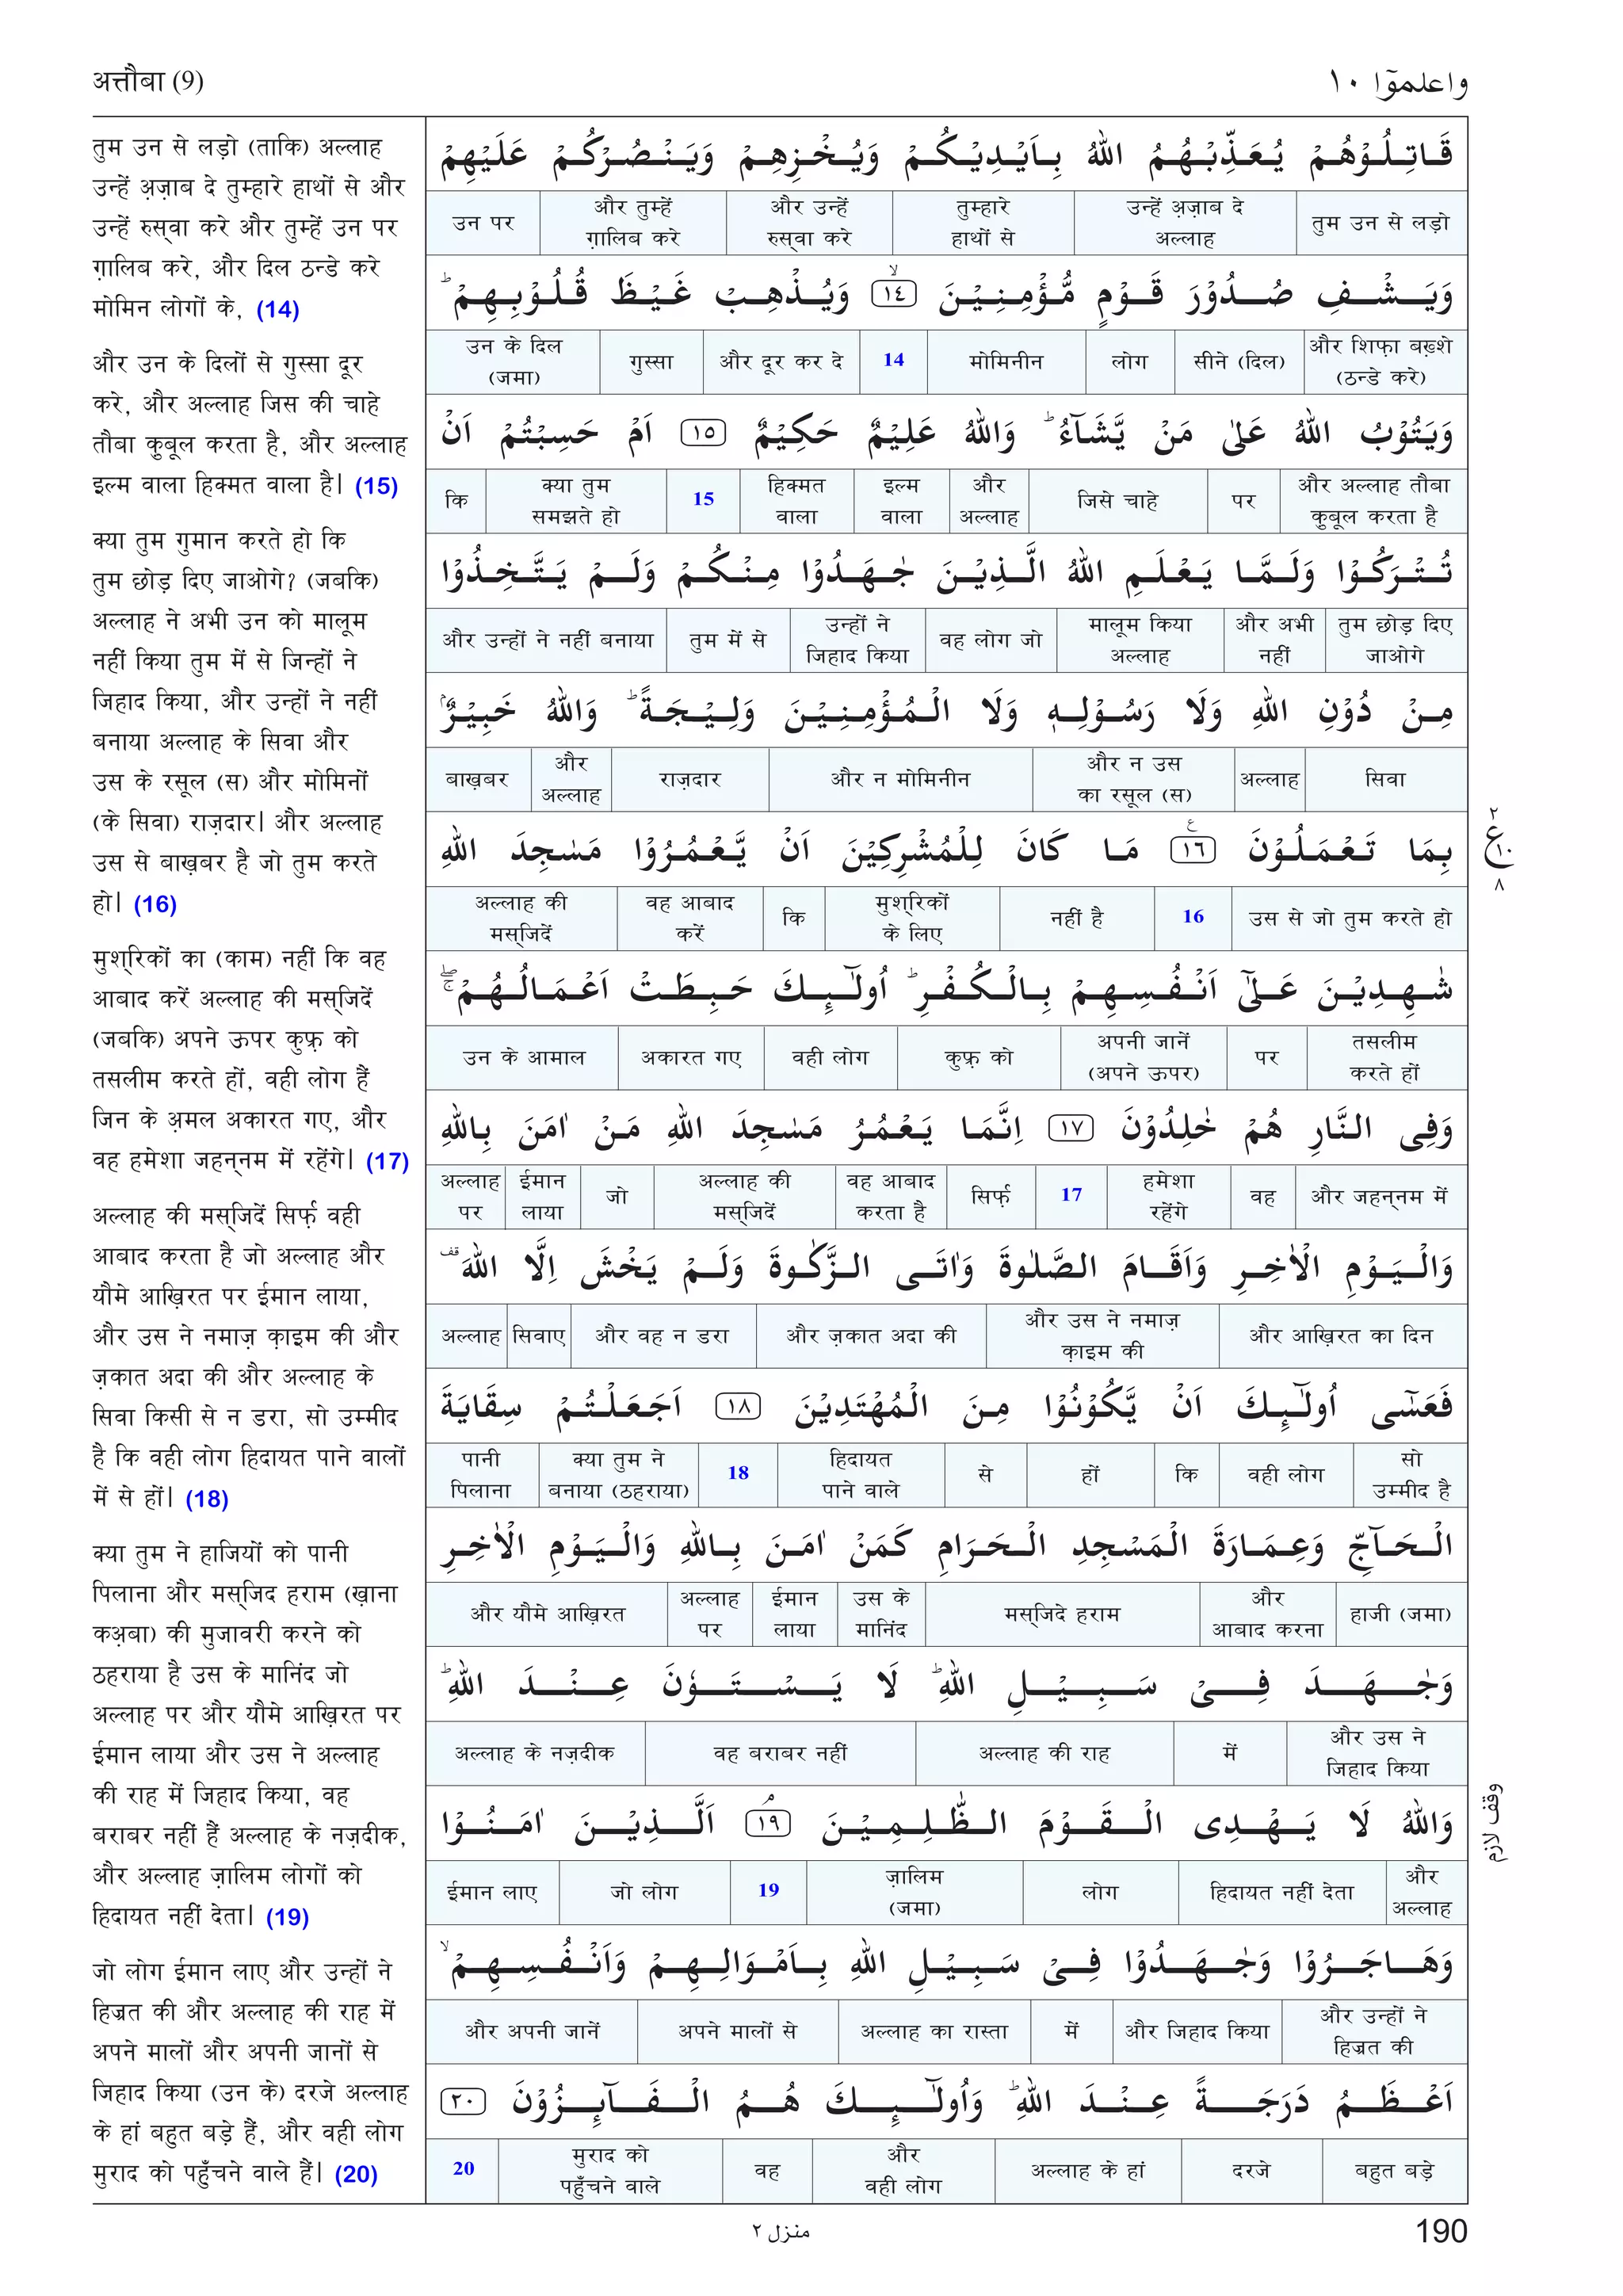 अत्तौबा (9)
واعلموٓا ١٠
तुम उन से लड़ो (ताकि) अल्लाह
उन्हें अ़ज़ाब दे तुम्हारे हाथों से और
उन्हें रुस्वा करे और तुम्हें उन पर
ग़ालिब करे, और दिल ठन्डे करे
मोमिन लोगों के, (14)
और उन के दिलों से गुस्सा दूर
करे, और अल्लाह जिस की चाहे
तौबा कुबूल करता है, और अल्लाह
इल्म वाला हिक्मत वाला है। (15)
क्या तुम गुमान करते हो कि
तुम छोड़ दिए जाओगे? (जबकि)
अल्लाह ने अभी उन को मालूम
नहीं किया तुम में से जिन्हों ने
जिहाद किया, और उन्हों ने नहीं
बनाया अल्लाह के सिवा और
उस के रसूल (स) और मोमिनों
(के सिवा) राज़दार। और अल्लाह
उस से बाख़बर है जो तुम करते
हो। (16)
मुश्रिकों का (काम) नहीं कि वह
आबाद करें अल्लाह की मस्जिदें
(जबकि) अपने ऊपर कुफ़्र को
तसलीम करते हों, वही लोग हैं
जिन के अ़मल अकारत गए, और
वह हमेशा जहन्नम में रहेंगे। (17)
अल्लाह की मस्जिदें सिर्फ़ वही
आबाद करता है जो अल्लाह और
यौमे आख़िरत पर ईमान लाया,
और उस ने नमाज़ क़ाइम की और
ज़कात अदा की और अल्लाह के
सिवा किसी से न डरा, सो उम्मीद
है कि वही लोग हिदायत पाने वालों
में से हों। (18)
क्या तुम ने हाजियों को पानी
पिलाना और मस्जिद हराम (ख़ाना
कअ़बा) की मुजावरी करने को
ठहराया है उस के मानिंद जो
अल्लाह पर और यौमे आख़िरत पर
ईमान लाया और उस ने अल्लाह
की राह में जिहाद किया, वह
बराबर नहीं हैं अल्लाह के नज़दीक,
और अल्लाह ज़ालिम लोगों को
हिदायत नहीं देता। (19)
जो लोग ईमान लाए और उन्हों ने
हिज्रत की और अल्लाह की राह में
अपने मालों और अपनी जानों से
जिहाद किया (उन के) दरजे अल्लाह
के हां बहुत बड़े हैं, और वही लोग
मुराद को पहुँचने वाले हैं। (20)
قَاتِلُوْهُمْ يُعَذِّبْهُمُ اللّٰهُ بِاَيْدِيْكُمْ وَيُخْزِهِمْ وَيَنْصُرْكُمْ عَلَيْهِمْ
तुम उन से लड़ो | उन्हें अ़ज़ाब दे अल्लाह | तुम्हारे हाथों से | और उन्हें रुस्वा करे | और तुम्हें ग़ालिब करे | उन पर
وَيَشْفِ صُدُوْرَ قَوْمٍ مُّؤْمِنِيْنَ ۙ ١٤ وَيُذْهِبْ غَيْظَ قُلُوْبِهِمْ ؕ
और शिफ़ा बख़्शे (ठन्डे करे) | सीने (दिल) | लोग | मोमिनीन | 14 | और दूर कर दे | गुस्सा | उन के दिल (जमा)
وَيَتُوْبُ اللّٰهُ عَلٰى مَنْ يَّشَآءُ ؕ وَاللّٰهُ عَلِيْمٌ حَكِيْمٌ ١٥ اَمْ حَسِبْتُمْ اَنْ
और अल्लाह तौबा कुबूल करता है | पर | जिसे चाहे | और अल्लाह | इल्म वाला | हिक्मत वाला | 15 | क्या तुम समझते हो | कि
تُتْرَكُوْا وَلَمَّا يَعْلَمِ اللّٰهُ الَّذِيْنَ جٰهَدُوْا مِنْكُمْ وَلَمْ يَتَّخِذُوْا
तुम छोड़ दिए जाओगे | और अभी नहीं | मालूम किया अल्लाह | वह लोग जो | उन्हों ने जिहाद किया | तुम में से | और उन्हों ने नहीं बनाया
مِنْ دُوْنِ اللّٰهِ وَلَا رَسُوْلِهٖ وَلَا الْمُؤْمِنِيْنَ وَلِيْجَةً ؕ وَاللّٰهُ خَبِيْرٌۢ
सिवा | अल्लाह | और न उस का रसूल (स) | और न मोमिनीन | राज़दार | और अल्लाह | बाख़बर
بِمَا تَعْمَلُوْنَ ١٦ مَا كَانَ لِلْمُشْرِكِيْنَ اَنْ يَّعْمُرُوْا مَسٰجِدَ اللّٰهِ
उस से जो तुम करते हो | 16 | नहीं है | मुश्रिकों के लिए | कि | वह आबाद करें | अल्लाह की मस्जिदें
شٰهِدِيْنَ عَلٰٓى اَنْفُسِهِمْ بِالْكُفْرِ ؕ اُولٰٓئِكَ حَبِطَتْ اَعْمَالُهُمْ ۖۚ
तसलीम करते हों | पर | अपनी जानें (अपने ऊपर) | कुफ़्र को | वही लोग | अकारत गए | उन के आमाल
وَفِى النَّارِ هُمْ خٰلِدُوْنَ ١٧ اِنَّمَا يَعْمُرُ مَسٰجِدَ اللّٰهِ مَنْ اٰمَنَ بِاللّٰهِ
और जहन्नम में | वह | हमेशा रहेंगे | 17 | सिर्फ़ | वह आबाद करता है | अल्लाह की मस्जिदें | जो | ईमान लाया | अल्लाह पर
وَالْيَوْمِ الْاٰخِرِ وَاَقَامَ الصَّلٰوةَ وَاٰتَى الزَّكٰوةَ وَلَمْ يَخْشَ اِلَّا اللّٰهَ قف
और आख़िरत का दिन | और उस ने नमाज़ क़ाइम की | और ज़कात अदा की | और वह न डरा | सिवाए | अल्लाह
فَعَسٰٓى اُولٰٓئِكَ اَنْ يَّكُوْنُوْا مِنَ الْمُهْتَدِيْنَ ١٨ اَجَعَلْتُمْ سِقَايَةَ
सो उम्मीद है | वही लोग | कि | हों | से | हिदायत पाने वाले | 18 | क्या तुम ने बनाया (ठहराया) | पानी पिलाना
الْحَآجِّ وَعِمَارَةَ الْمَسْجِدِ الْحَرَامِ كَمَنْ اٰمَنَ بِاللّٰهِ وَالْيَوْمِ الْاٰخِرِ
हाजी (जमा) | और आबाद करना | मस्जिदे हराम | उस के मानिंद | ईमान लाया | अल्लाह पर | और यौमे आख़िरत
وَجٰهَدَ فِيْ سَبِيْلِ اللّٰهِ ؕ لَا يَسْتَوٗنَ عِنْدَ اللّٰهِ ؕ
और उस ने जिहाद किया | में | अल्लाह की राह | वह बराबर नहीं | अल्लाह के नज़दीक
وَاللّٰهُ لَا يَهْدِى الْقَوْمَ الظّٰلِمِيْنَ ۘ ١٩ اَلَّذِيْنَ اٰمَنُوْا
और अल्लाह | हिदायत नहीं देता | लोग | ज़ालिम (जमा) | 19 | जो लोग | ईमान लाए
وَهَاجَرُوْا وَجٰهَدُوْا فِيْ سَبِيْلِ اللّٰهِ بِاَمْوَالِهِمْ وَاَنْفُسِهِمْ ۙ
और उन्हों ने हिज्रत की | और जिहाद किया | में | अल्लाह का रास्ता | अपने मालों से | और अपनी जानें
اَعْظَمُ دَرَجَةً عِنْدَ اللّٰهِ ؕ وَاُولٰٓئِكَ هُمُ الْفَآئِزُوْنَ ٢٠
बहुत बड़े | दरजे | अल्लाह के हां | और वही लोग | वह | मुराद को पहुँचने वाले | 20
٢
ع ١٠
٨
وقف لازم
منزل ٢
190